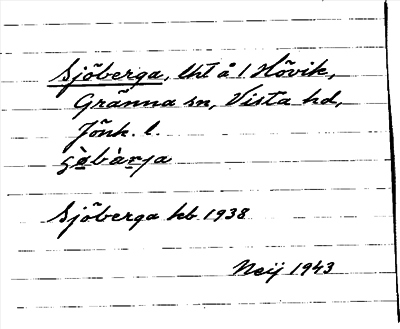 Sjöberga, lht å 1 Hövik,
Gränna sn, Vista hd,
Jönk. l.
Sjöberga kb 1938
Neij 1943